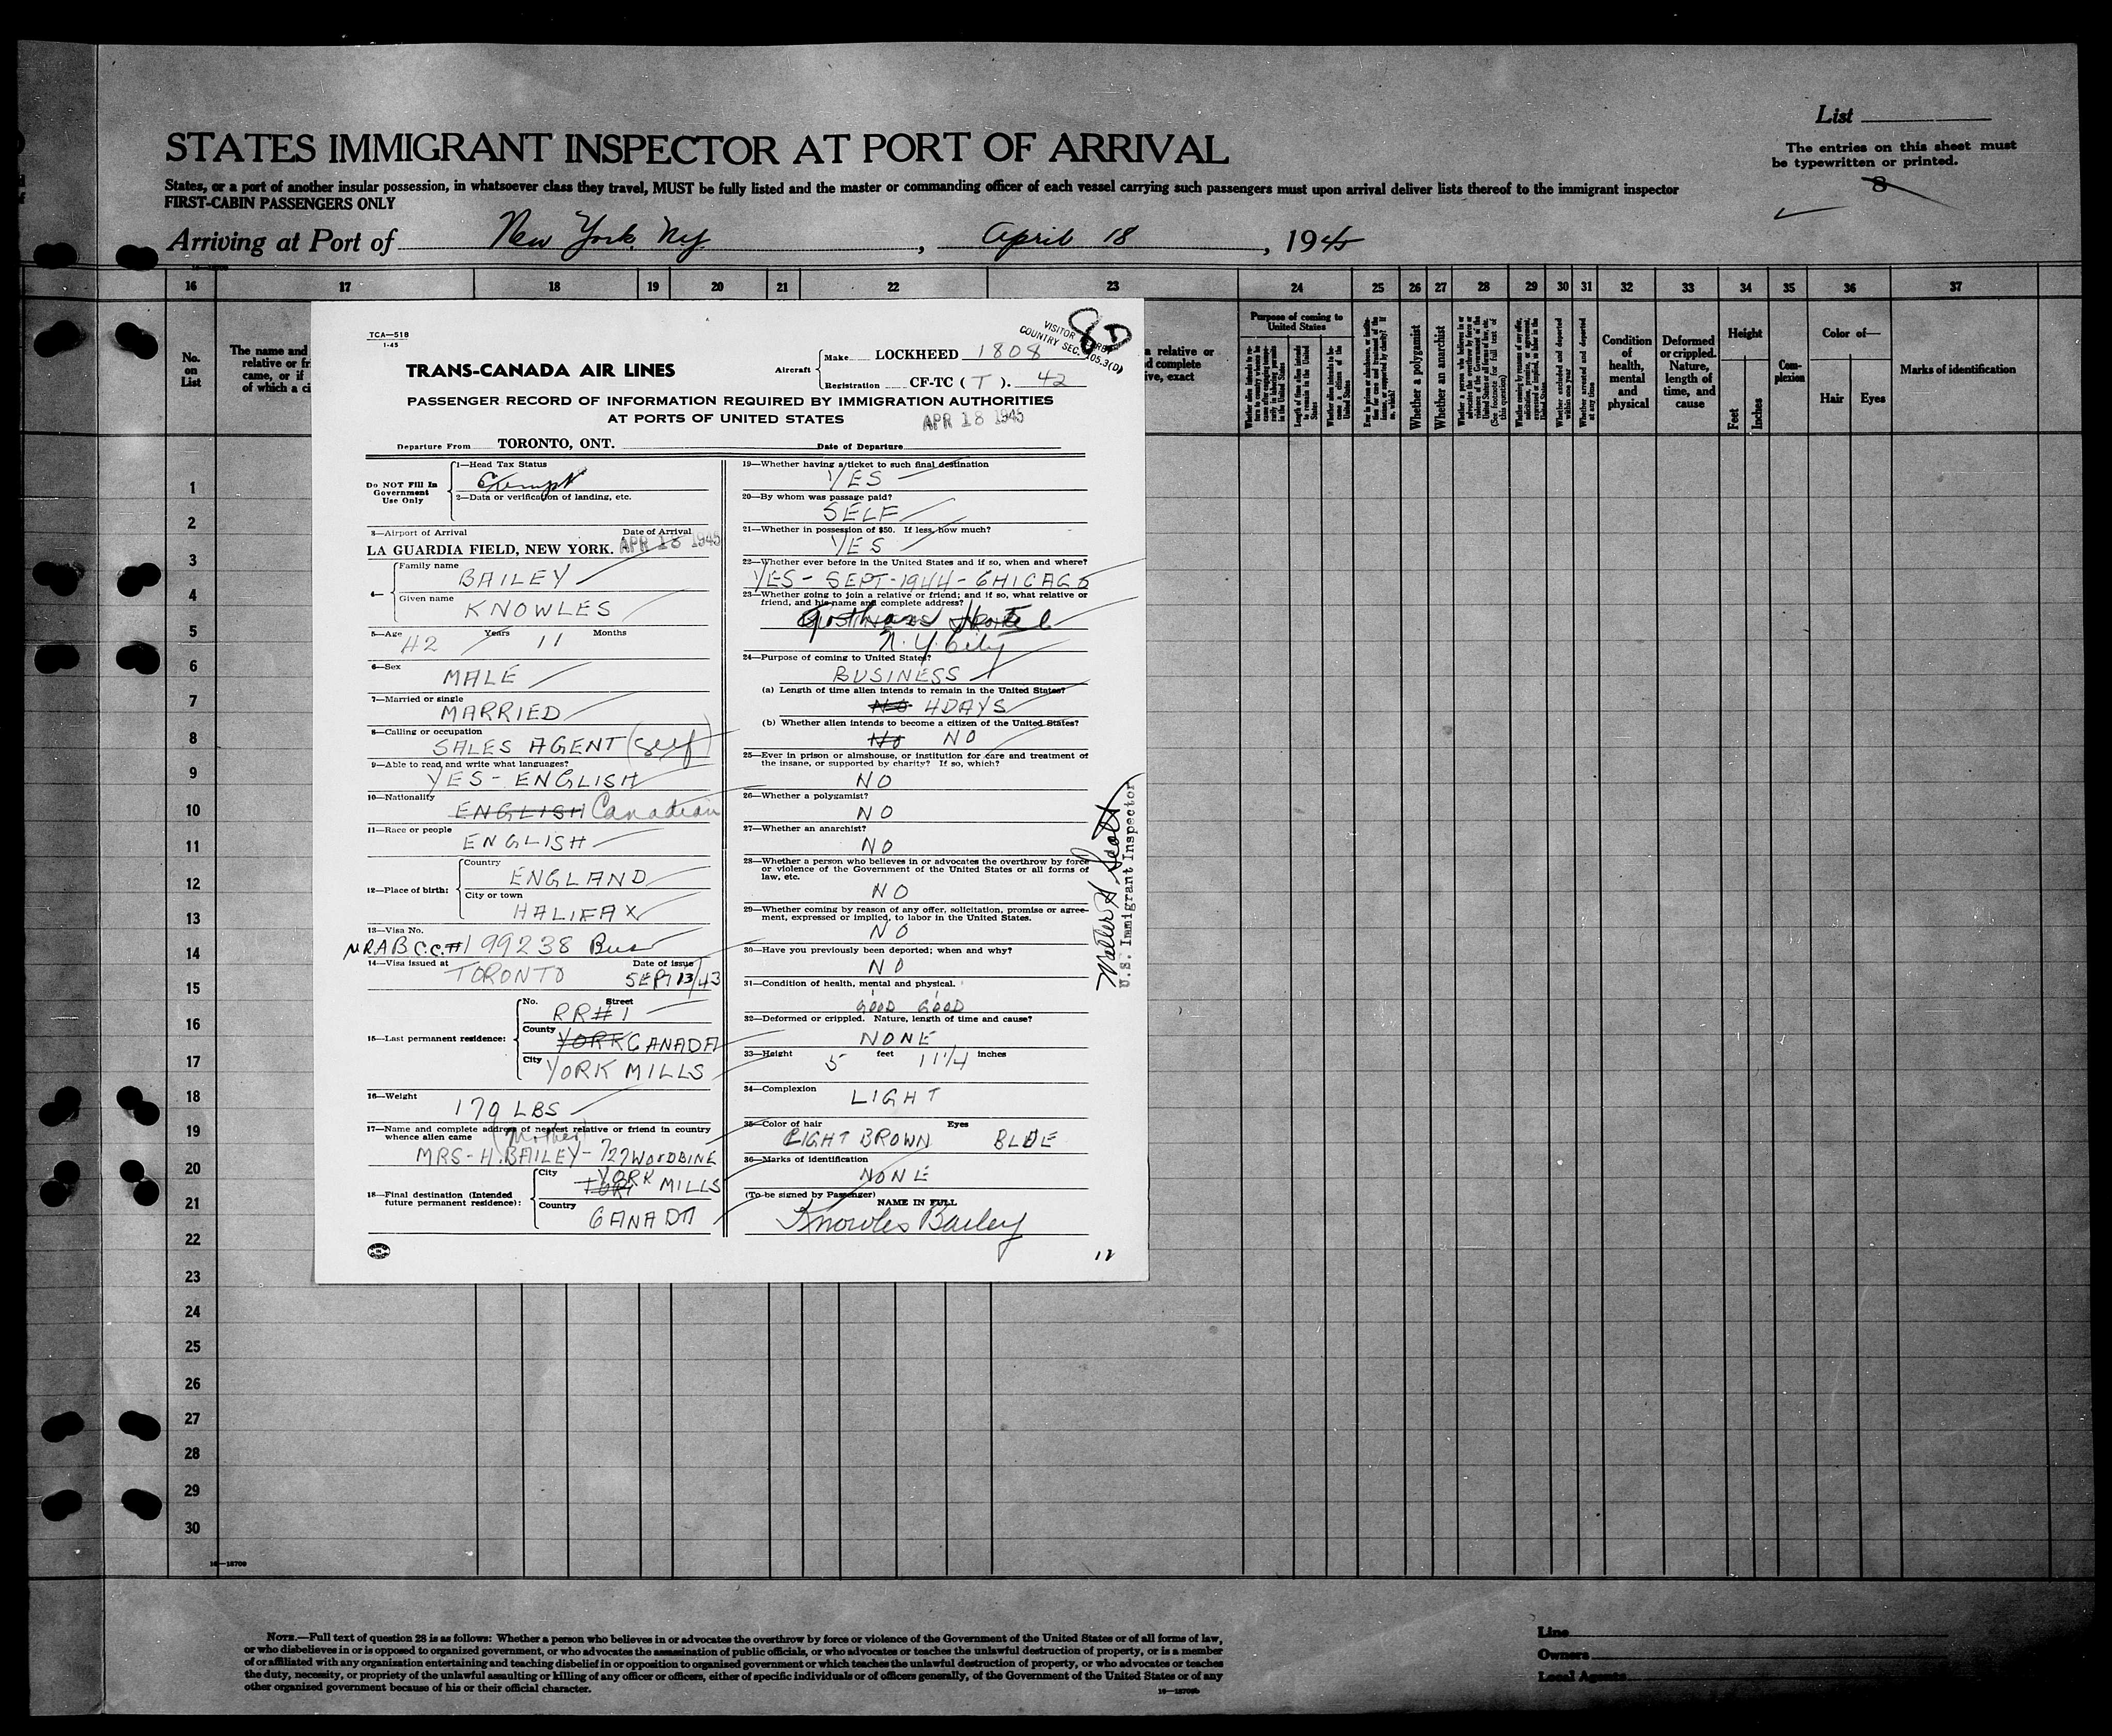 List
STATES IMMIGRANT INSPECTOR AT PORT OF ARRIVAL
The entries on this sheet must
be typewritten or printed.
States, or a port of another insular possession, in whatsoever class they travel, MUST be fully listed and the master or commanding officer of each vessel carrying such passengers must upon arrival deliver lists thereof to the immigrant inspector
8
FIRST-CABIN PASSENGERS ONLY
Arriving at Port of New York, NY, April 18, 1945
16 17 18 19 20 21 22 23 24 25 26 27 28 29 30 31 32 33 34 35 36 37
No. on List
The name and
relative or fr
came, or if
of which a ci
a relative or
d complete
ve, exact
Purpose of coming to
United States
Whether a polygamist
Whether an anarchist
(See footnote for full text of this question)
Whether arrested and deported at any time
Condition of health, mental and physical
Deformed or crippled. Nature, length of time, and cause
Height
Feet
Inches
Complexion
Color of—
Hair
Eyes
Marks of identification
TCA—518
1-45
VISITOR
COUNTRY SEC.
8D
TRANS-CANADA AIR LINES
Aircraft
Make LOCKHEED 1808
Registration CF-TC ( T ). 42
PASSENGER RECORD OF INFORMATION REQUIRED BY IMMIGRATION AUTHORITIES
AT PORTS OF UNITED STATES
APR 18 1945
Departure From TORONTO, ONT. Date of Departure
Do NOT Fill In
Government
Use Only
1—Head Tax Status
Exempt
2—Data or verification of landing, etc.
3—Airport of Arrival Date of Arrival
LA GUARDIA FIELD, NEW YORK. APR 18 1945
4—
Family name
BAILEY
Given name
KNOWLES
5—Age 42 Years 11 Months
6—Sex
MALE
7—Married or single
MARRIED
8—Calling or occupation
SALES AGENT (self)
9—Able to read and write what languages?
YES - ENGLISH
10—Nationality
ENGLISH Canadian
11—Race or people
ENGLISH
12—Place of birth:
Country
ENGLAND
City or town
HALIFAX
13—Visa No.
NRABCC.#199238 Bus
14—Visa issued at Date of issue
TORONTO SEPT 13/43
15—Last permanent residence:
No. Street
RR#1
County
YORK CANADA
City
YORK MILLS
16—Weight
170 LBS
17—Name and complete address of nearest relative or friend in country
whence alien came
(Mother)
MRS - H. BAILEY - 727 WOODBINE
18—Final destination (Intended
future permanent residence):
City
YORK MILLS
Country
CANADA
19—Whether having a ticket to such final destination
YES
20—By whom was passage paid?
SELF
21—Whether in possession of $50. If less, how much?
YES
22—Whether ever before in the United States and if so, when and where?
YES - SEPT - 1944 - CHICAGO
23—Whether going to join a relative or friend; and if so, what relative or
friend, and his name and complete address?
Gotham Hotel
N. Y. City
24—Purpose of coming to United States?
BUSINESS
(a) Length of time alien intends to remain in the United States?
NO 4 DAYS
(b) Whether alien intends to become a citizen of the United States?
NO NO
25—Ever in prison or almshouse, or institution for care and treatment of
the insane, or supported by charity? If so, which?
NO
26—Whether a polygamist?
NO
27—Whether an anarchist?
NO
28—Whether a person who believes in or advocates the overthrow by force
or violence of the Government of the United States or all forms of
law, etc.
NO
29—Whether coming by reason of any offer, solicitation, promise or agree-
ment, expressed or implied, to labor in the United States.
NO
30—Have you previously been deported; when and why?
NO
31—Condition of health, mental and physical.
GOOD GOOD
32—Deformed or crippled. Nature, length of time and cause?
NONE
33—Height 5 feet 11 1/4 inches
34—Complexion
LIGHT
35—Color of hair Eyes
LIGHT BROWN BLUE
36—Marks of identification
NONE
(To be signed by Passenger)
NAME IN FULL
Knowles Bailey
12
Scott
U.S. Immigrant Inspector
1
2
3
4
5
6
7
8
9
10
11
12
13
14
15
16
17
18
19
20
21
22
23
24
25
26
27
28
29
30
16—18709
NOTE.—Full text of question 28 is as follows: Whether a person who believes in or advocates the overthrow by force or violence of the Government of the United States or of all forms of law,
or who disbelieves in or is opposed to organized government, or who advocates the assassination of public officials, or who advocates or teaches the unlawful destruction of property, or is a member
of or affiliated with any organization entertaining and teaching disbelief in or opposition to organized government or which teaches the unlawful destruction of property, or who advocates or teaches
the duty, necessity, or propriety of the unlawful assaulting or killing of any officer or officers, either of specific individuals or of officers generally, of the Government of the United States or of any
other organized government because of his or their official character.
16—18709b
Line
Owners
Local Agents